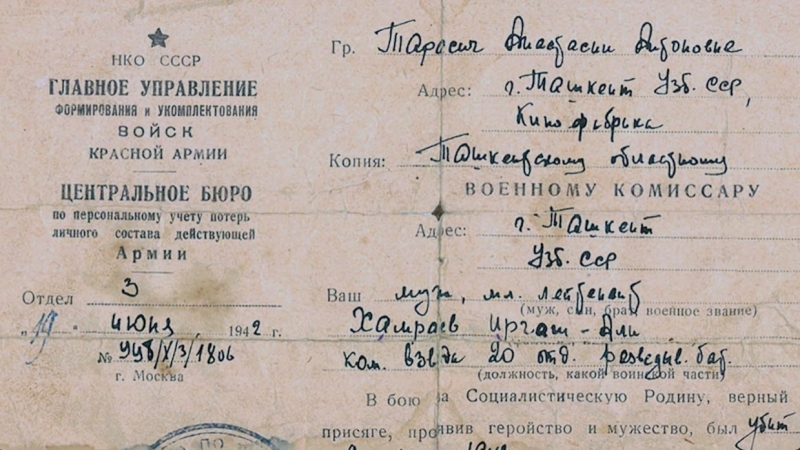 НКО СССР
ГЛАВНОЕ УПРАВЛЕНИЕ
ФОРМИРОВАНИЯ и УКОМПЛЕКТОВАНИЯ
ВОЙСК
КРАСНОЙ АРМИИ
ЦЕНТРАЛЬНОЕ БЮРО
по персональному учету потерь
личного состава действующей
Армии
Отдел 3
"19" июня, 1942 г.
г. Москва
Гр. Тарасич Анастасии Антоновне
Адрес: г. Ташкент Узб. ССР,
Кинофабрика
Копия: Ташкентскому областному
ВОЕННОМУ КОМИССАРУ
Адрес: г. Ташкент
Узб. ССР
Ваш муж, мл. лейтенант
(муж, сын, брат, военное звание)
Хамраев Иргаш-Али
ком. взвода 20 отд. разведыв. бат.
(должность, какой воинской части)
В бою за Социалистическую Родину, верный
присяге, проявив геройство и мужество, был убит